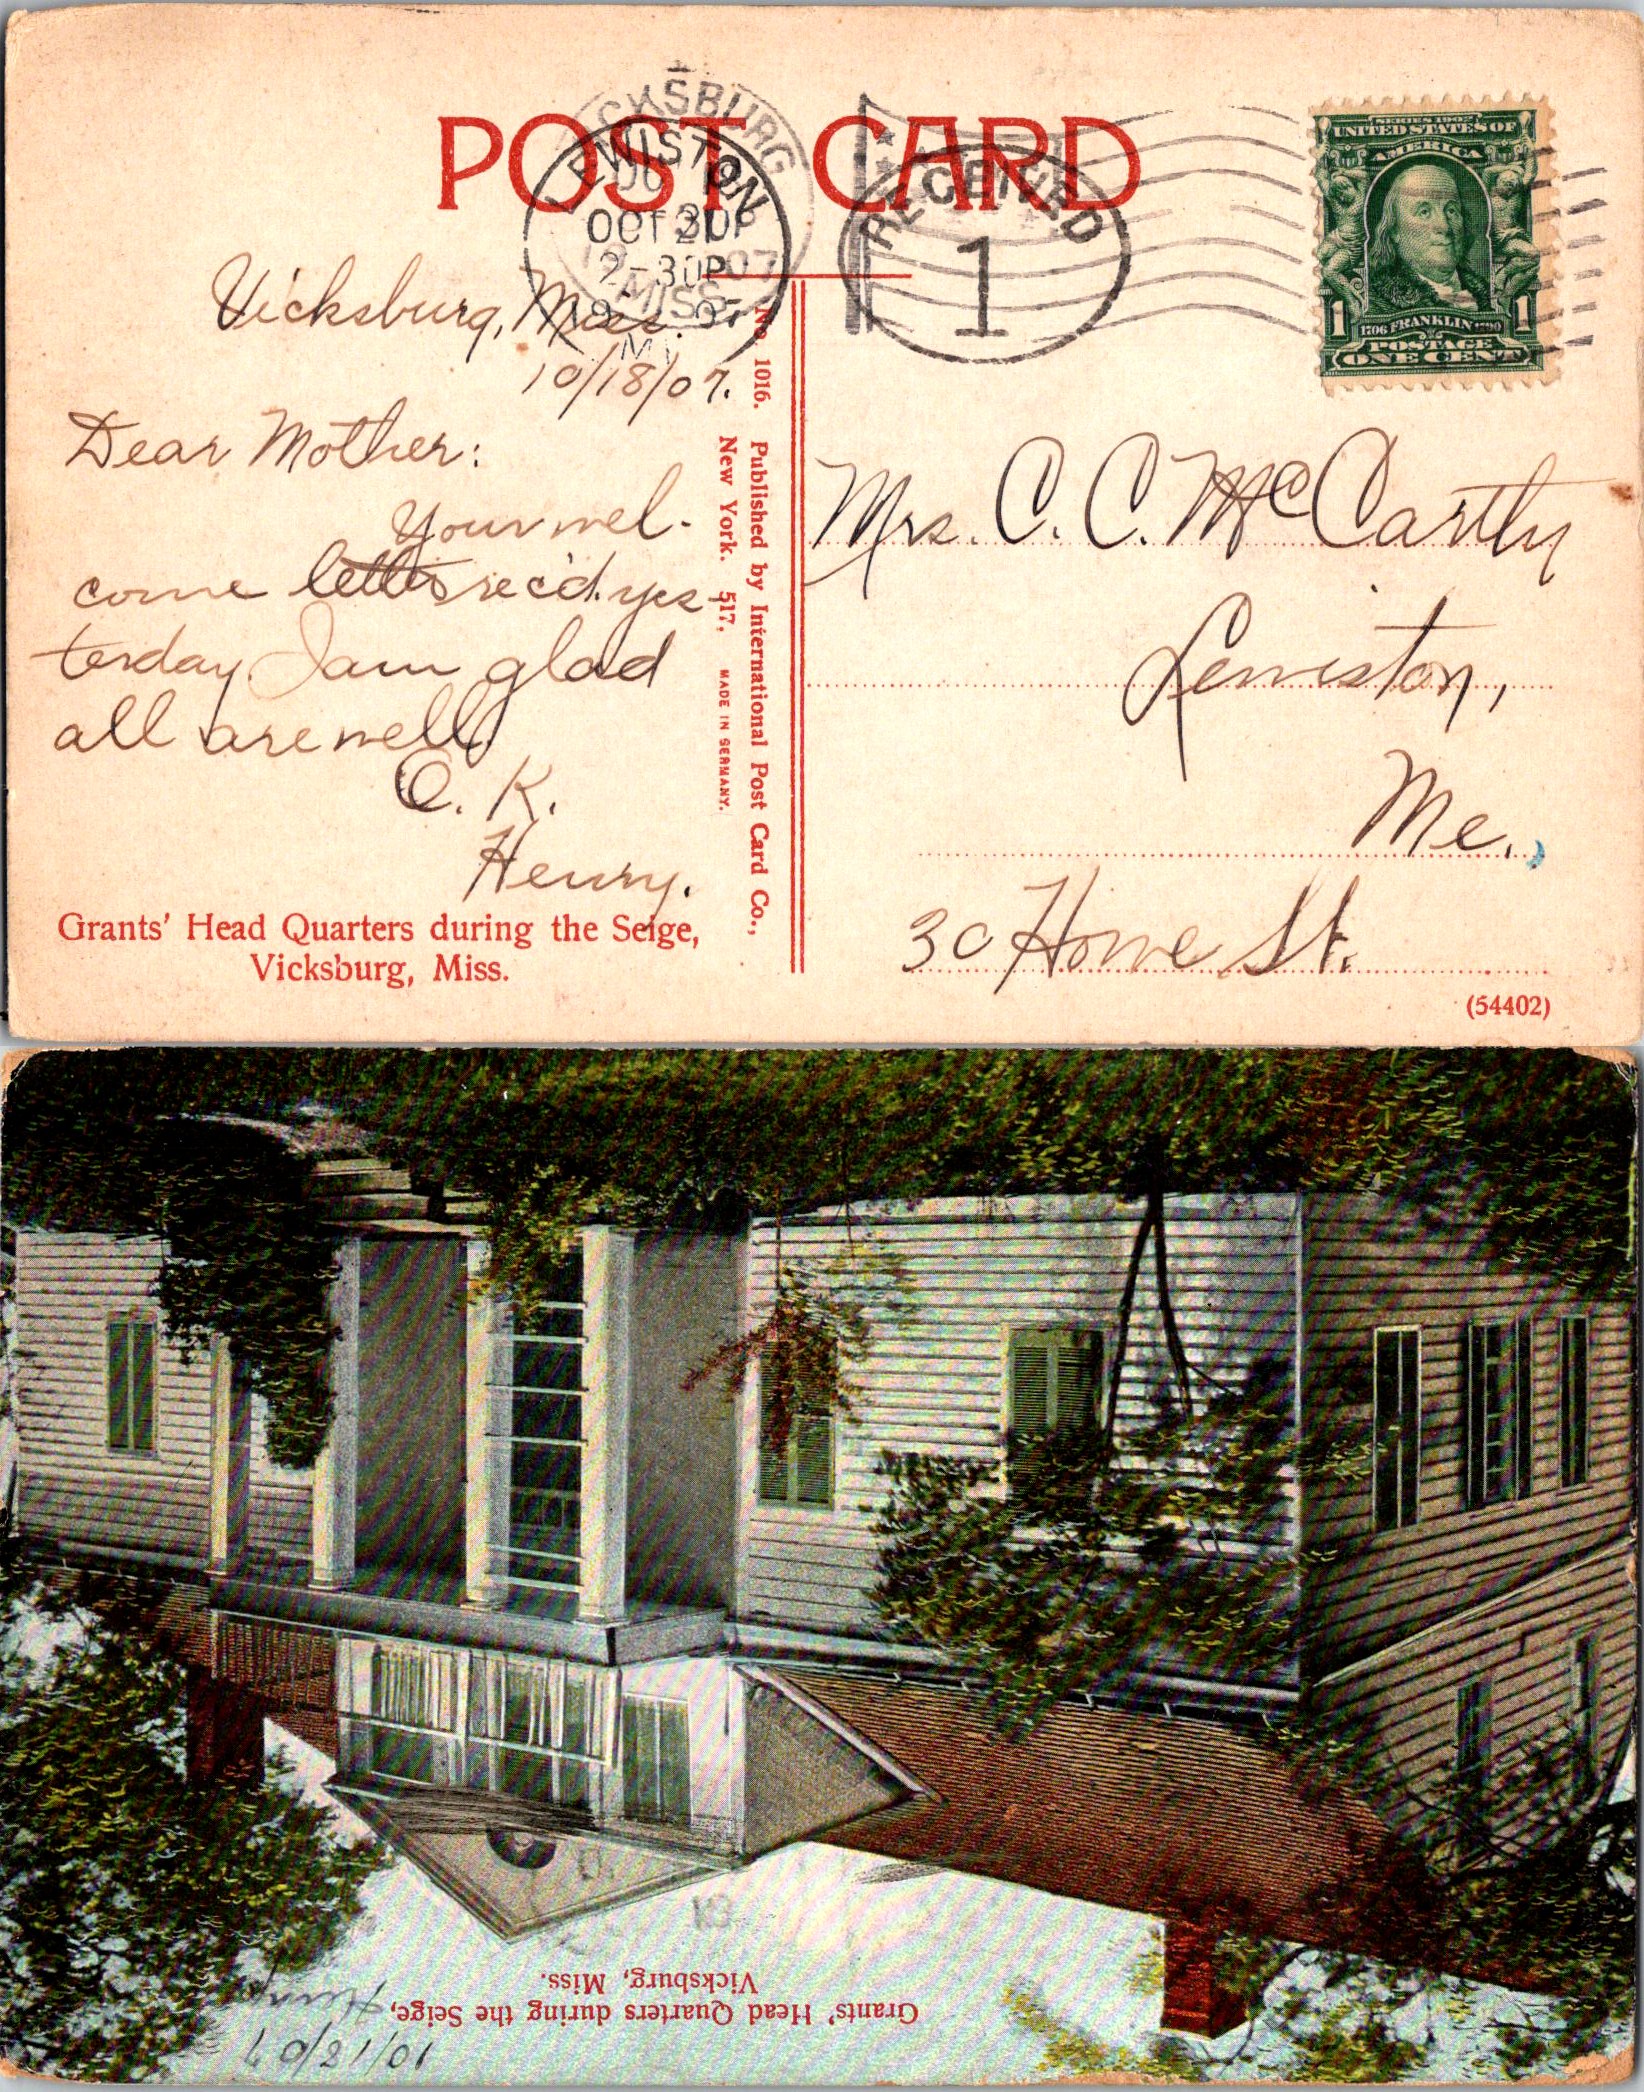 POST CARD
VICKSBURG
MISS.
LEWISTON
OCT 21
2-30P
RECEIVED
1
SERIES 1902
UNITED STATES OF
AMERICA
1706 FRANKLIN 1790
POSTAGE
1 ONE CENT 1
Vicksburg, Miss.
10/18/07.
Dear Mother:
Your wel-
come letters rec'd. yes-
terday I am glad
all are well
O. K.
Henry.
Grants' Head Quarters during the Seige,
Vicksburg, Miss.
No. 1016. Published by International Post Card Co.,
New York. 517. MADE IN GERMANY.
Mrs. C. C. McCarthy
Lewiston,
Me.,
30 Howe St.
(54402)
Grants' Head Quarters during the Seige,
Vicksburg, Miss.
10/21/07